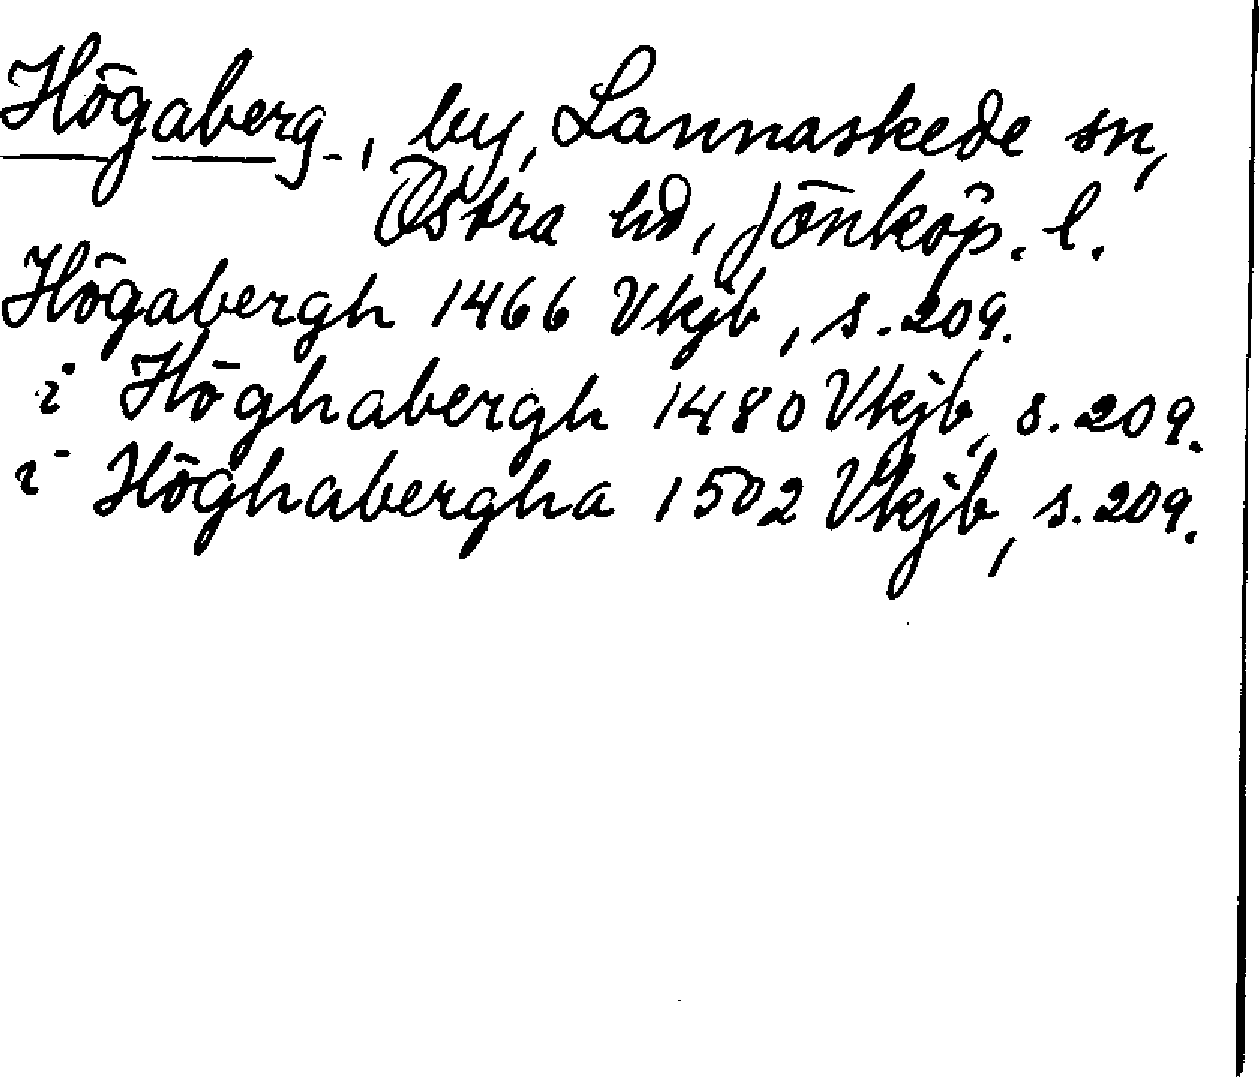 Högaberg, by, Lannaskede sn,
Östra hd, Jönköp. l.
Högabergh 1466 Vkjb, s. 209.
i Höghabergh 1480 Vkjb, s. 209.
i Höghabergha 1502 Vkjb, s. 209.